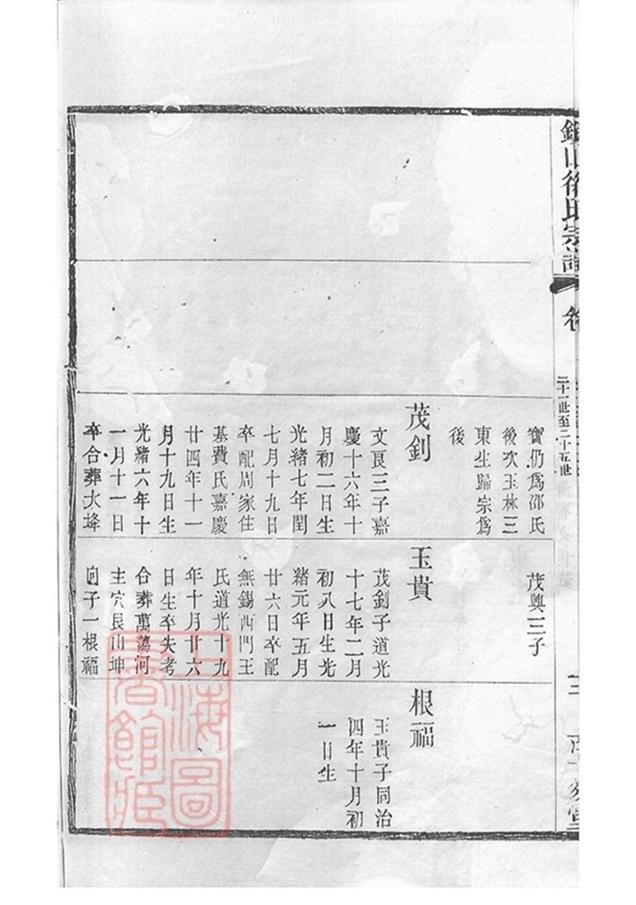 山徐氏宗譜
卷
二十一世至二十五世
三
寶仍爲邵氏
後次玉林三
東生歸宗爲
後
茂釗
文良三子嘉
慶十六年十
月初二日生
光緒七年閏
七月十九日
卒配周家住
基費氏嘉慶
廿四年十一
月十九日生
光緒六年十
一月十一日
卒合葬大
茂興三子
玉貴
茂釗子道光
十七年二月
初八日生光
緒元年五月
廿六日卒配
無錫西門王
氏道光十九
年十月廿六
日生卒失考
合葬萬蕩河
主穴艮山坤
向子一根福
根福
玉貴子同治
四年十月初
一日生
海圖
書館